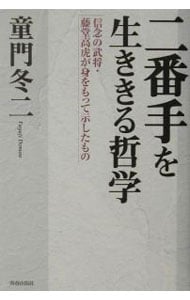 二番手を
生ききる哲学
「信念の武将・
藤堂高虎が身をもって示したもの
童門冬二
Domon Fuyuji
青春出版社